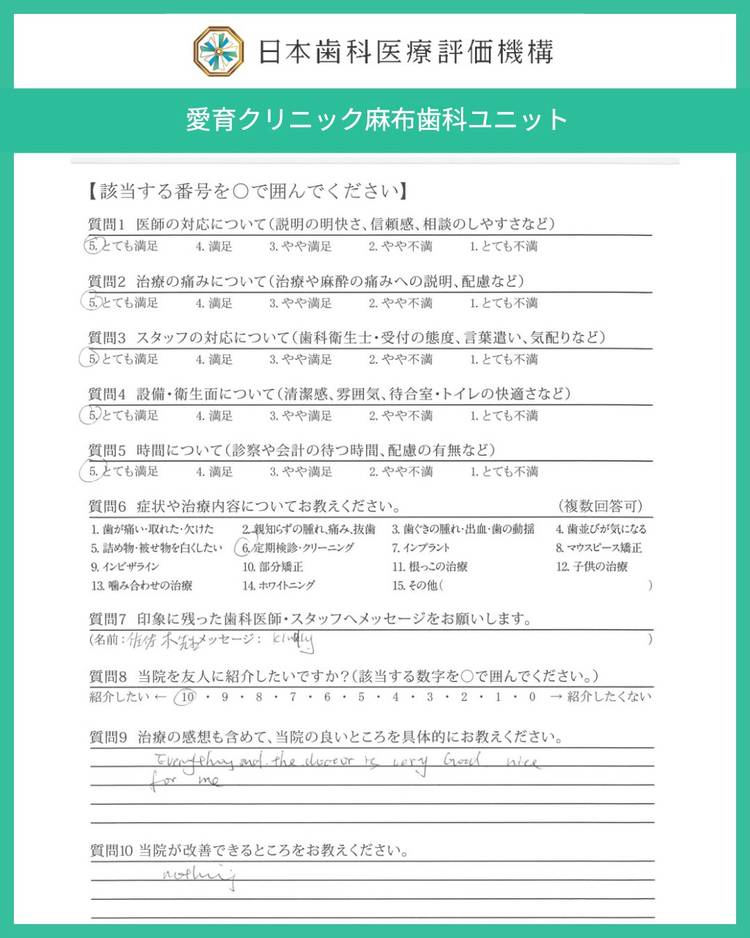 日本歯科医療評価機構
愛育クリニック麻布歯科ユニット
【該当する番号を〇で囲んでください】
質問1 医師の対応について(説明の明快さ、信頼感、相談のしやすさなど)
5.とても満足 4.満足 3.やや満足 2.やや不満 1.とても不満
質問2 治療の痛みについて(治療や麻酔の痛みへの説明、配慮など)
5.とても満足 4.満足 3.やや満足 2.やや不満 1.とても不満
質問3 スタッフの対応について(歯科衛生士・受付の態度、言葉遣い、気配りなど)
5.とても満足 4.満足 3.やや満足 2.やや不満 1.とても不満
質問4 設備・衛生面について(清潔感、雰囲気、待合室・トイレの快適さなど)
5.とても満足 4.満足 3.やや満足 2.やや不満 1.とても不満
質問5 時間について(診察や会計の待つ時間、配慮の有無など)
5.とても満足 4.満足 3.やや満足 2.やや不満 1.とても不満
質問6 症状や治療内容についてお教えください。 (複数回答可)
1.歯が痛い・取れた・欠けた 2.親知らずの腫れ,痛み,抜歯 3.歯ぐきの腫れ・出血・歯の動揺 4.歯並びが気になる
5.詰め物・被せ物を白くしたい 6.定期検診・クリーニング 7.インプラント 8.マウスピース矯正
9.インビザライン 10.部分矯正 11.根っこの治療 12.子供の治療
13.噛み合わせの治療 14.ホワイトニング 15.その他( )
質問7 印象に残った歯科医師・スタッフへメッセージをお願いします。
(名前:佐佐木先生メッセージ: kindly )
質問8 当院を友人に紹介したいですか?(該当する数字を〇で囲んでください。)
紹介したい ← 10 ・ 9 ・ 8 ・ 7 ・ 6 ・ 5 ・ 4 ・ 3 ・ 2 ・ 1 ・ 0 → 紹介したくない
質問9 治療の感想も含めて、当院の良いところを具体的にお教えください。
Everything and the doctor is very Good nice
for me
質問10 当院が改善できるところをお教えください。
nothing